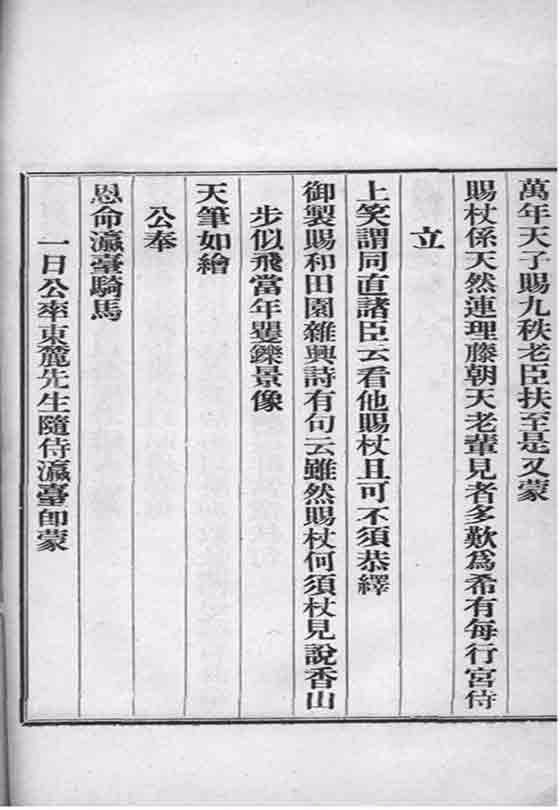 萬年天子賜九秩老臣扶至是又蒙
賜杖係天然連理藤朝天老輩見者多歎爲希有每行宮侍
立
上笑謂同直諸臣云看他賜杖且可不須恭繹
御製賜和田園雜興詩有句云雖然賜杖何須杖見說香山
步似飛當年矍鑠景像
天筆如繪
公奉
恩命瀛臺騎馬
一日公率東麓先生隨侍瀛臺卽蒙